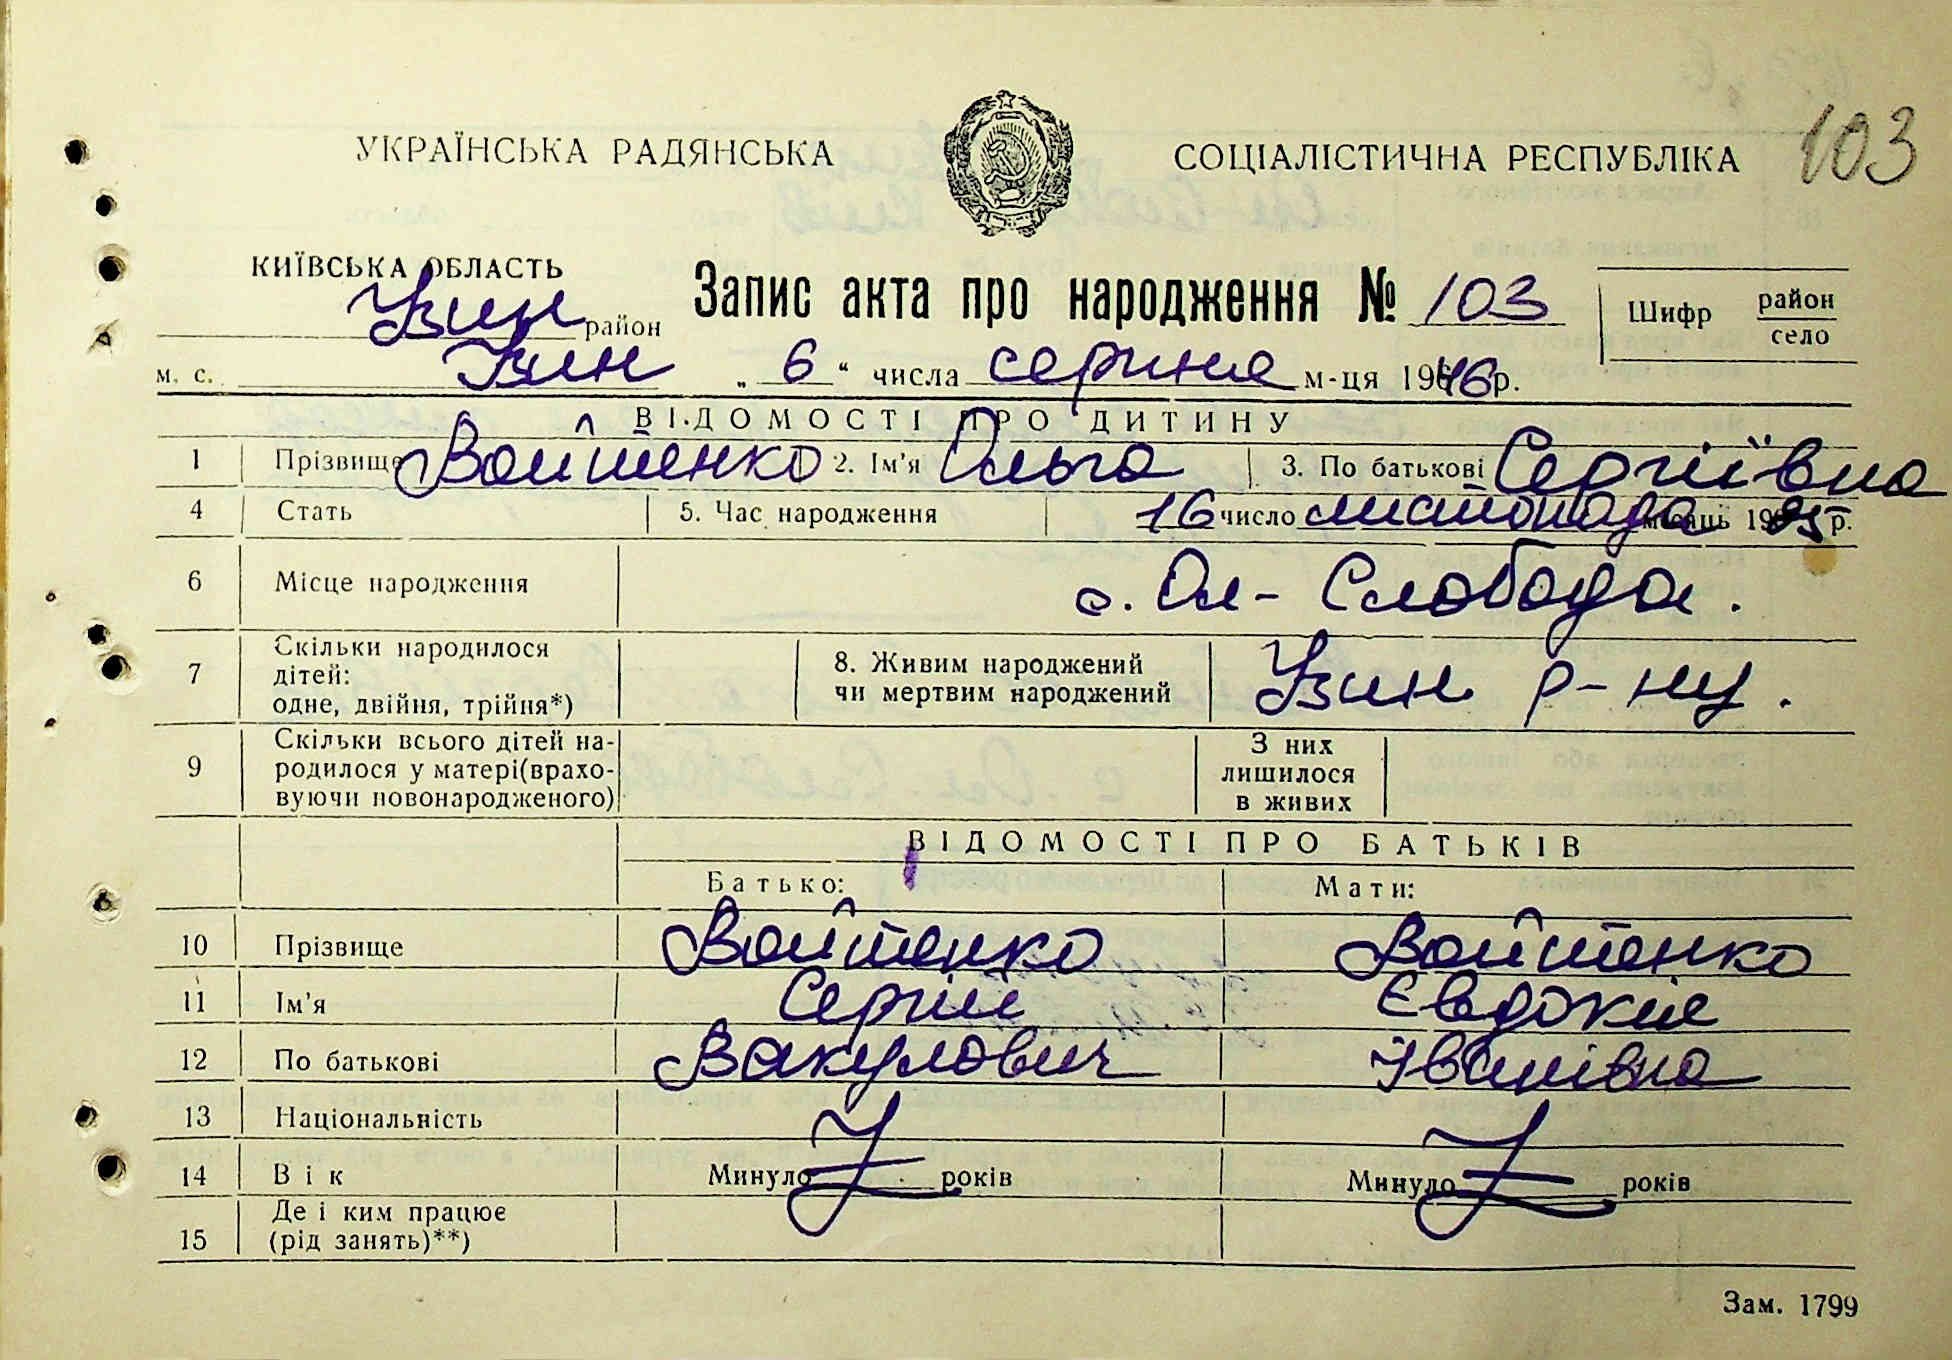 103
УКРАЇНСЬКА РАДЯНСЬКА СОЦІАЛІСТИЧНА РЕСПУБЛІКА
КИЇВСЬКА ОБЛАСТЬ
Узин район
Запис акта про народження № 103
Шифр район
село
м. с. Узин „ 6 “ числа серпня м-ця 1946 р.
ВІДОМОСТІ ПРО ДИТИНУ
1 Прізвище Войтенко 2. Ім'я Ольга 3. По батькові Сергіївна
4 Стать 5. Час народження 16 число листопада місяць 1925 р.
6 Місце народження с. Ол-Слобода.
7 Скільки народилося
дітей:
одне, двійня, трійня*)
8. Живим народжений
чи мертвим народжений
Узин р-ну.
9 Скільки всього дітей на-
родилося у матері(врахо-
вуючи новонародженого)
З них
лишилося
в живих
ВІДОМОСТІ ПРО БАТЬКІВ
Батько: Мати:
10 Прізвище Войтенко Войтенко
11 Ім'я Сергій Євдокія
12 По батькові Вакулович Іванівна
13 Національність
14 Вік Минуло років Минуло років
15 Де і ким працює
(рід занять)**)
Зам. 1799